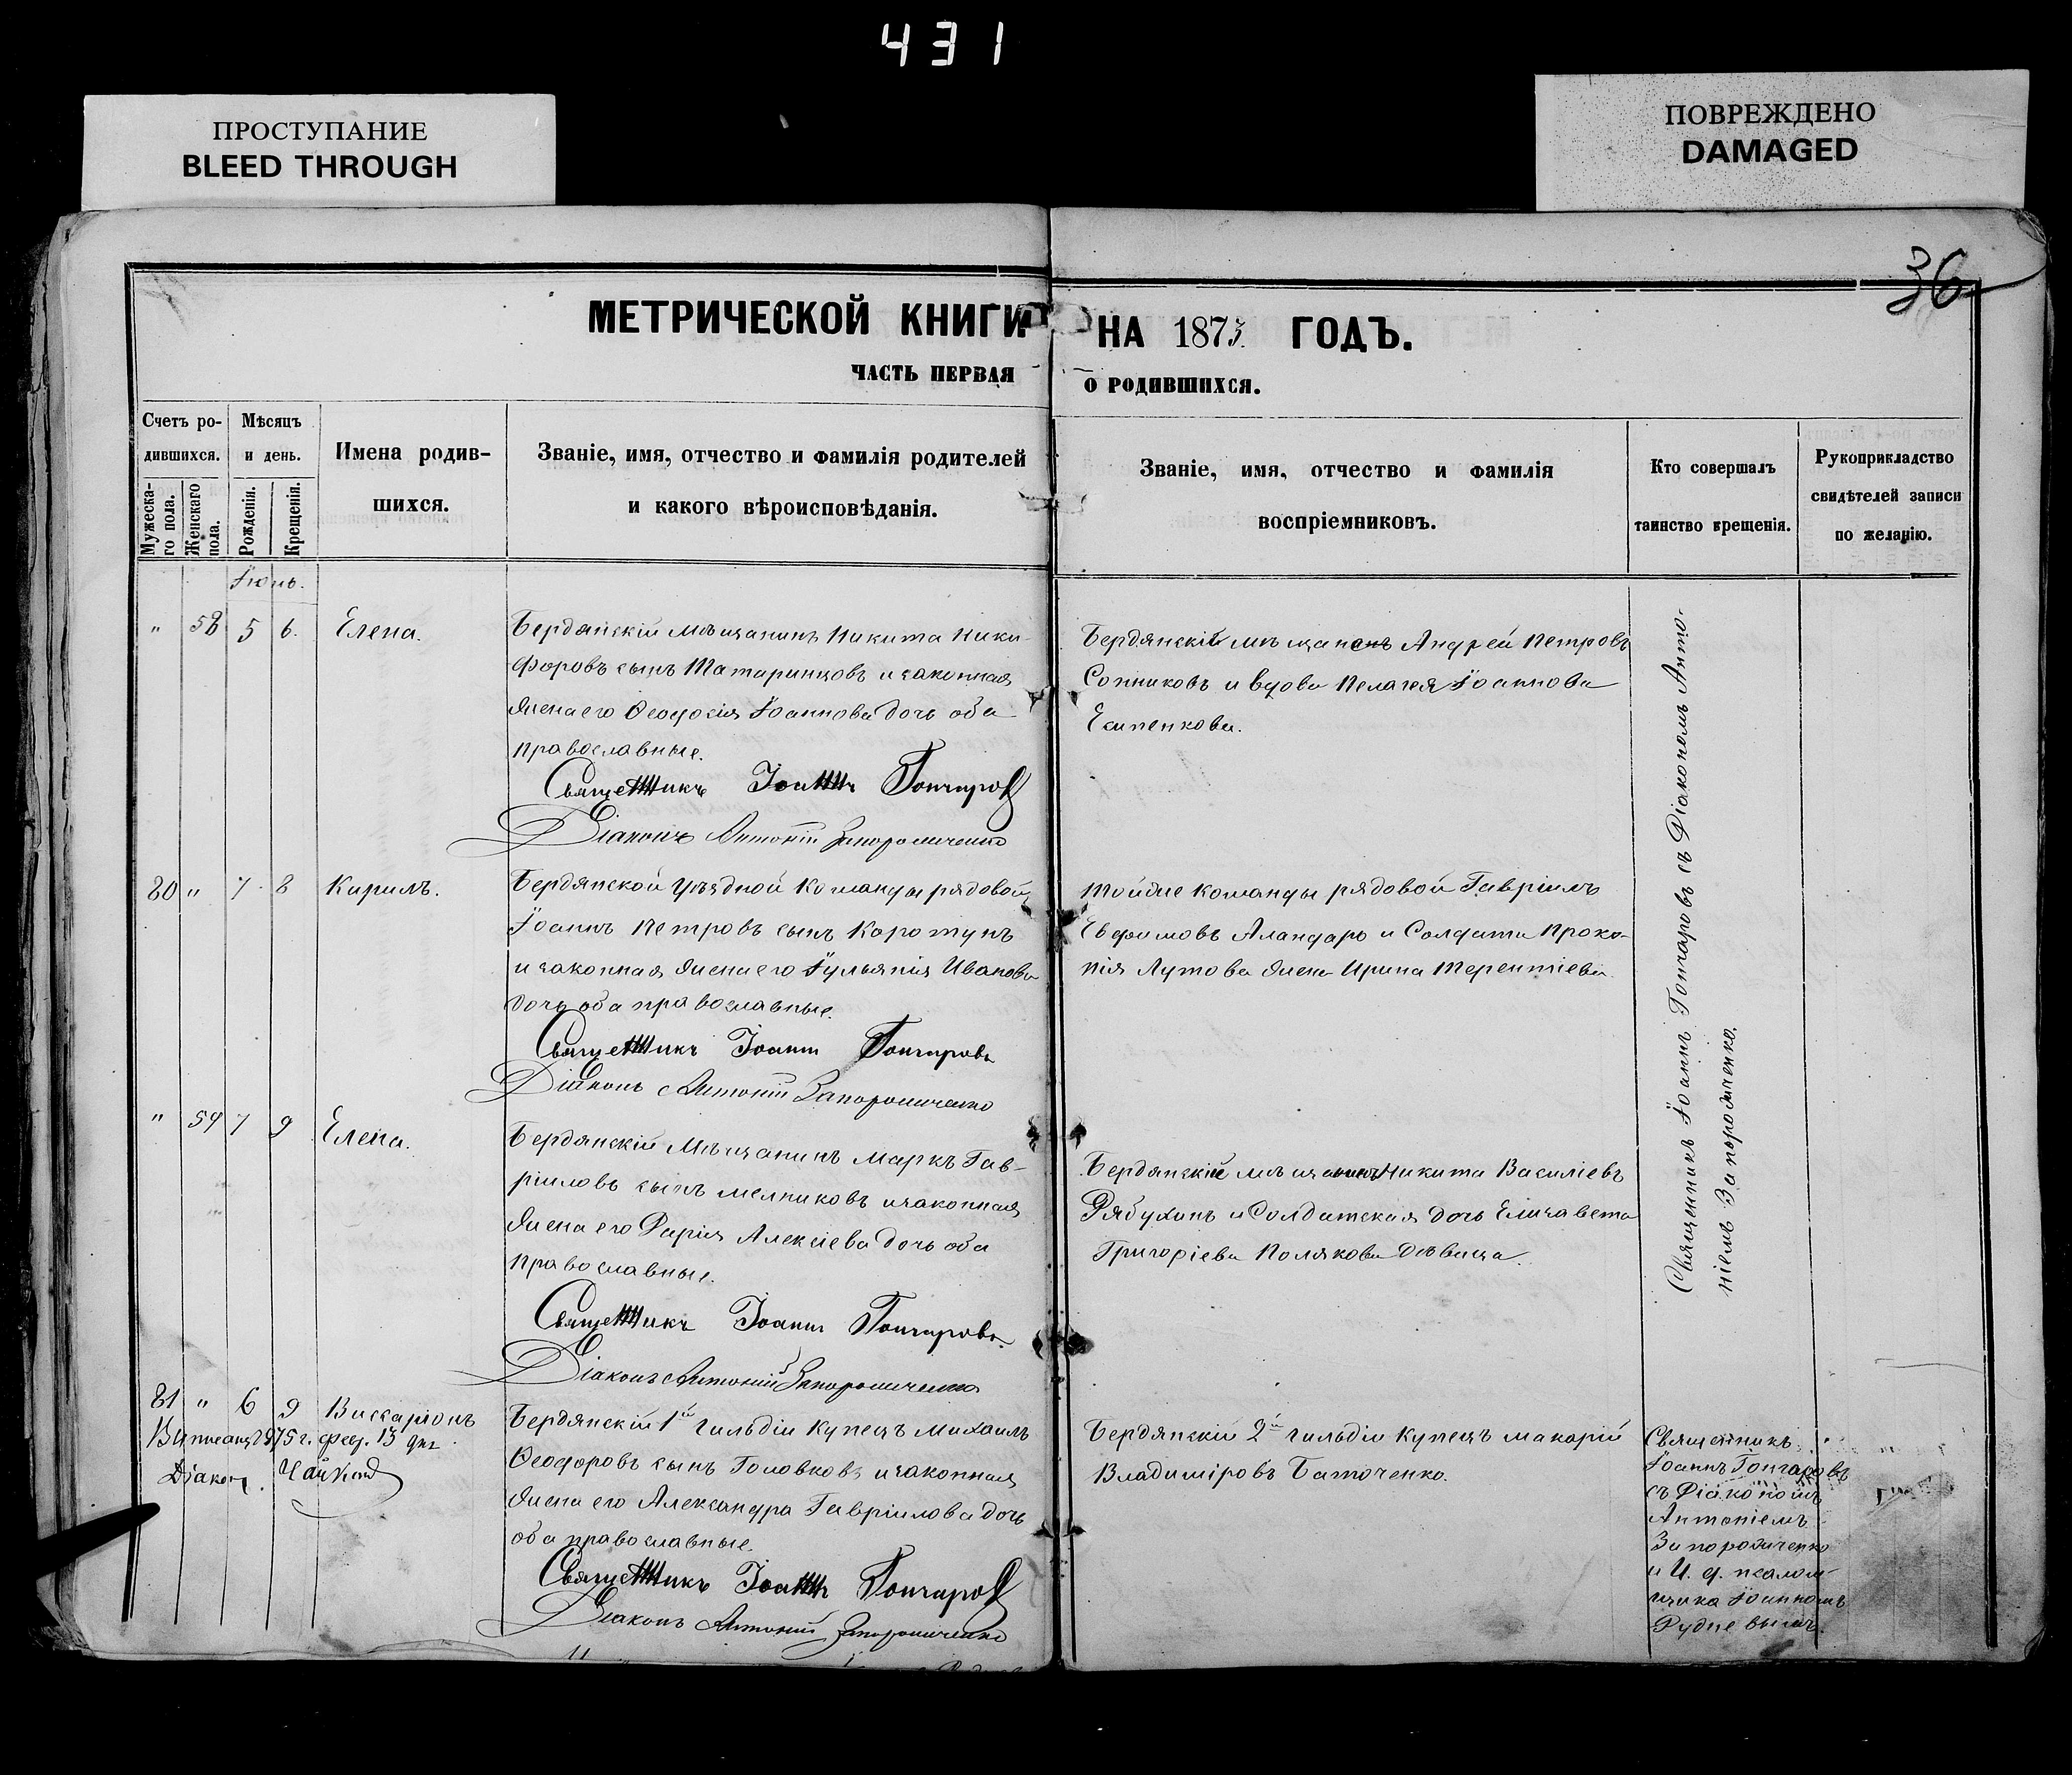 431
ПРОСТУПАНИЕ
BLEED THROUGH
ПОВРЕЖДЕНО
DAMAGED
36
МЕТРИЧЕСКОЙ КНИГИ НА 1873 ГОДЪ.
ЧАСТЬ ПЕРВАЯ О РОДИВШИХСЯ.
Счетъ ро-
дившихся.
Мужеска-
го пола.
Женскаго
пола.
Мѣсяцъ
и день.
Рожденія.
Крещенія.
Имена родив-
шихся.
Званіе, имя, отчество и фамилія родителей
и какого вѣроисповѣданія.
Званіе, имя, отчество и фамилія
воспріемниковъ.
Кто совершалъ
таинство крещенія.
Рукоприкладство
свидѣтелей записи
по желанію.
Іюнь.
" 58 5 6. Елена.
Бердянскій мѣщанинъ Никита Ники-
форовъ сынъ Татаринцовъ и законная
жена его Ѳеодосія Іоаннова дочь оба
православные.
Священникъ Іоаннъ Гончаровъ
Діаконъ Антоній Запорожченко
Бердянскій мѣщанинъ Андрей Петровъ
Сопниковъ и вдова Пелагея Іоаннова
Есипенкова.
Священникъ Іоаннъ Гончаровъ съ Діакономъ Анто-
ніемъ Запорожченко.
80 " 7 8 Кирилъ.
Бердянской уѣздной команды рядовой
Іоаннъ Петровъ сынъ Коротунъ
и законная жена его Іульянія Иванова
дочь оба православные.
Священникъ Іоаннъ Гончаровъ
Діаконъ Антоній Запорожченко
Тойже команды рядовой Гавріилъ
Евфимовъ Аландаръ и Солдата Проко-
пія Лутова жена Ирина Терентіева.
" 59 7 9 Елена.
Бердянскій Мѣщанинъ Маркъ Гав-
ріиловъ сынъ Мелниковъ и законная
жена его Дарія Алексіева дочь оба
православные.
Священникъ Іоаннъ Гончаровъ.
Діаконъ Антоній Запорожченко
Бердянскій мѣщанинъ Никита Василіевъ
Рябухинъ и Солдатская дочь Елисавета
Григоріева Полякова дѣвица.
81 " 6 9 Виссаріонъ
875 г. фев. 13 дня
Діакон Чайкин
Бердянскій 1й гильдіи купецъ Михаилъ
Ѳеодоровъ сынъ Головковъ и законная
жена его Александра Гавріилова дочь
оба православные.
Священникъ Іоаннъ Гончаровъ
Діаконъ Антоній Запорожченко
Бердянскій 2й гильдіи купецъ Макарій
Владиміровъ Баточенко.
Священникъ
Іоаннъ Гончаровъ
съ Діакономъ
Антоніемъ
Запорожченко
и И. д. псалом-
щика Іоанномъ